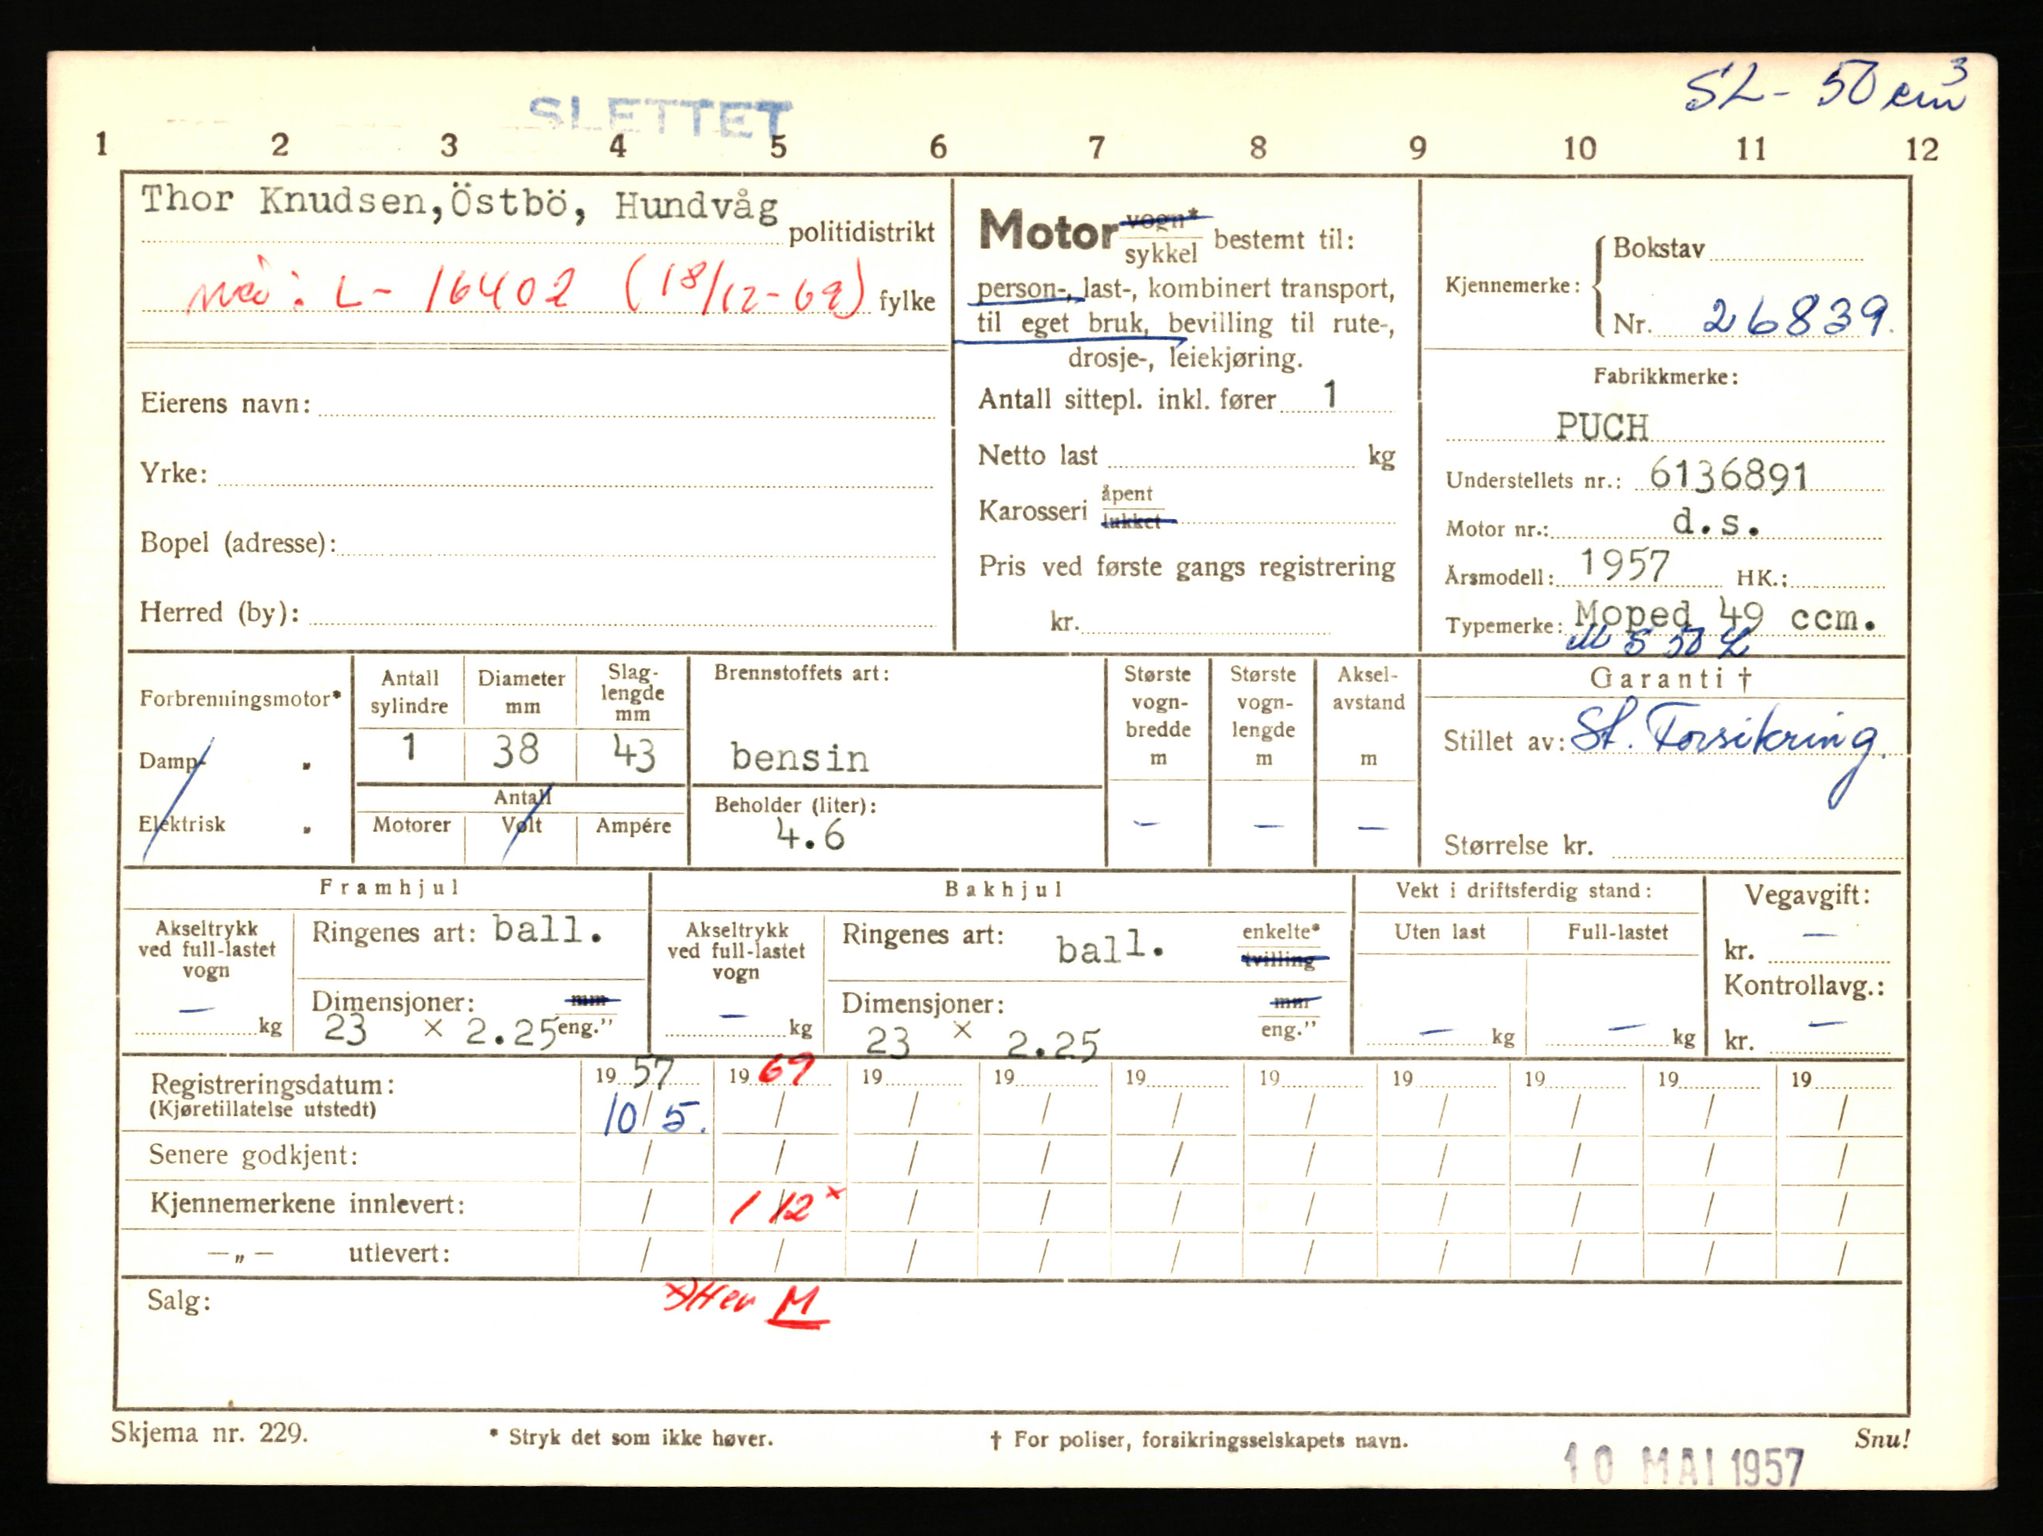 SL - 50 cm³
SLETTET
1 2 3 4 5 6 7 8 9 10 11 12
Thor Knudsen, Östbö, Hundvåg
politidistrikt
L - 16402 (18/12-69) fylke
Eierens navn:
Yrke:
Bopel (adresse):
Herred (by):
Motor vogn* sykkel bestemt til:
person-, last-, kombinert transport,
til eget bruk, bevilling til rute-,
drosje-, leiekjøring.
Antall sittepl. inkl. fører 1
Netto last kg
Karosseri åpent lukket
Pris ved første gangs registrering
kr.
Kjennemerke: Bokstav
Nr. 26839.
Fabrikkmerke:
PUCH
Understellets nr.: 6136891
Motor nr.: d.s.
Årsmodell: 1957 HK.:
Typemerke: Moped 49 ccm.
M S 50 L
Forbrenningsmotor*
Damp- "
Elektrisk "
Antall sylindre
Diameter mm
Slag-lengde mm
1 38 43
Antall
Motorer Volt Ampére
Brennstoffets art:
bensin
Beholder (liter):
4.6
Største vogn-bredde m
Største vogn-lengde m
Aksel-avstand m
– – –
Garanti †
Stillet av: St. Forsikring.
Størrelse kr.
Framhjul
Akseltrykk ved full-lastet vogn
– kg
Ringenes art: ball.
Dimensjoner: mm
23 x 2.25 eng."
Bakhjul
Akseltrykk ved full-lastet vogn
– kg
Ringenes art: ball. enkelte* tvilling
Dimensjoner: mm
23 x 2.25 eng."
Vekt i driftsferdig stand:
Uten last Full-lastet
– kg – kg
Vegavgift:
kr. –
Kontrollavg.:
kr. –
Registreringsdatum: 19 57 19 69 19 19 19 19 19 19 19 19
(Kjøretillatelse utstedt) 10/5. / / / / / / / / /
Senere godkjent: / / / / / / / / / /
Kjennemerkene innlevert: / 1/12 x / / / / / / / /
— „ — utlevert: / / / / / / / / / /
Salg: x) Her M
Skjema nr. 229.
* Stryk det som ikke høver.
† For poliser, forsikringsselskapets navn.
Snu!
10 MAI 1957